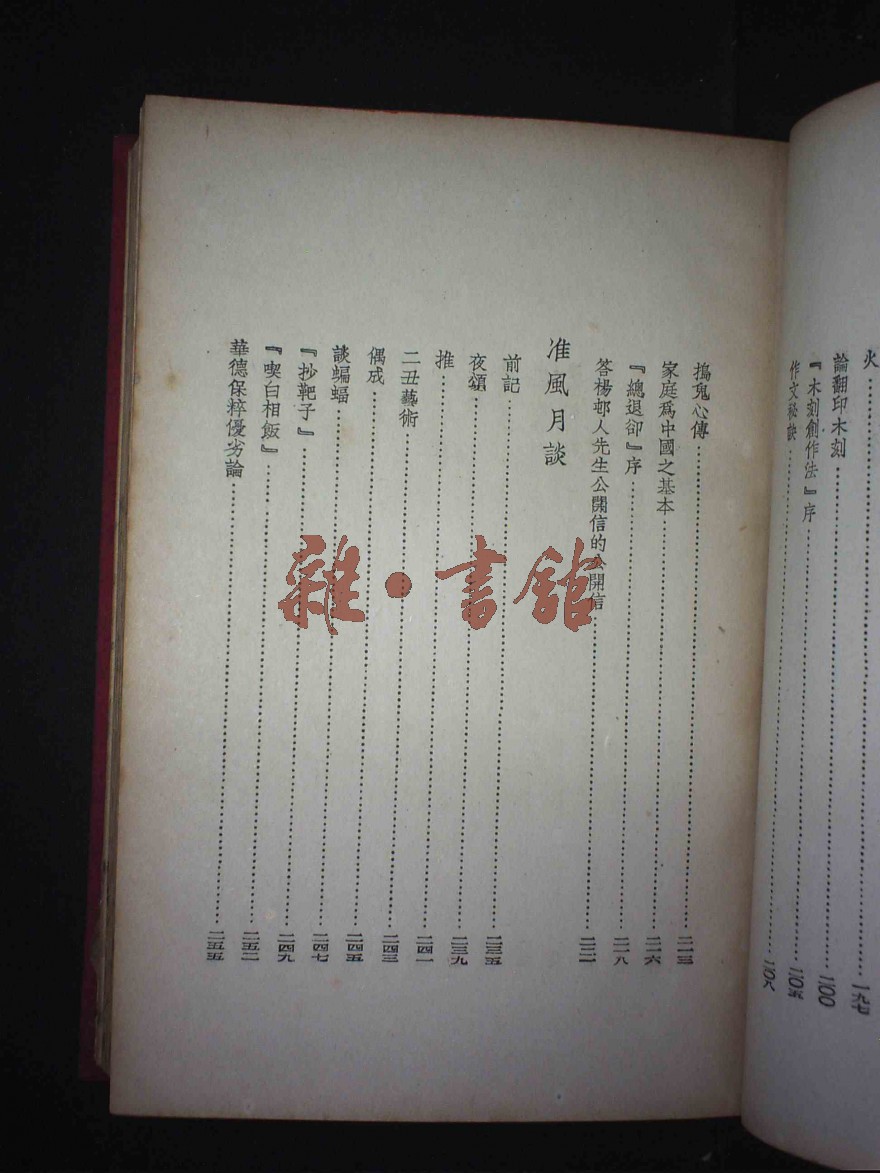 火……一九七
論翻印木刻……二〇〇
『木刻創作法』序……二〇五
作文秘訣……二〇八
搗鬼心傳……二一三
家庭爲中國之基本……二一六
『總退卻』序……二一八
答楊邨人先生公開信的公開信……二二一
准風月談
前記……二三五
夜頌……二三九
推……二四一
二丑藝術……二四三
偶成……二四五
談蝙蝠……二四七
『抄靶子』……二四九
『喫白相飯』……二五二
華德保粹優劣論……二五五
雜·書館